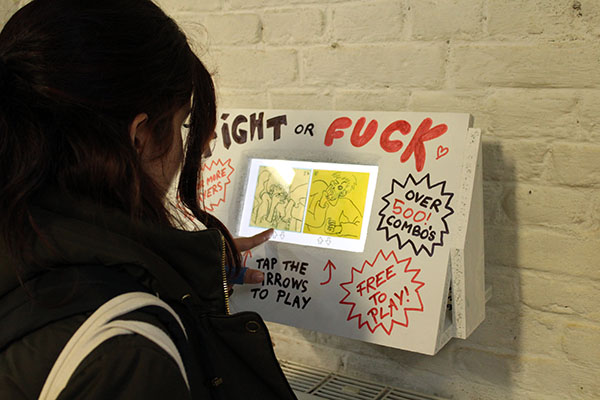 FIGHT OR FUCK
MORE
OVER
500!
COMBO'S
TAP THE
ARROWS
TO PLAY
FREE
TO
PLAY!